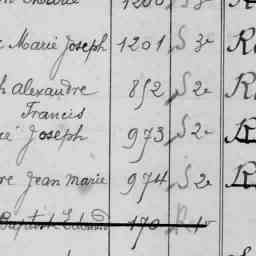 Marie Joseph 1201 S 3e R
h alexandre 852 S 2e R
Francis
Joseph 973 S 2e R
re Jean marie 974 S 2e R
Baptiste Edouard 170 R 1e